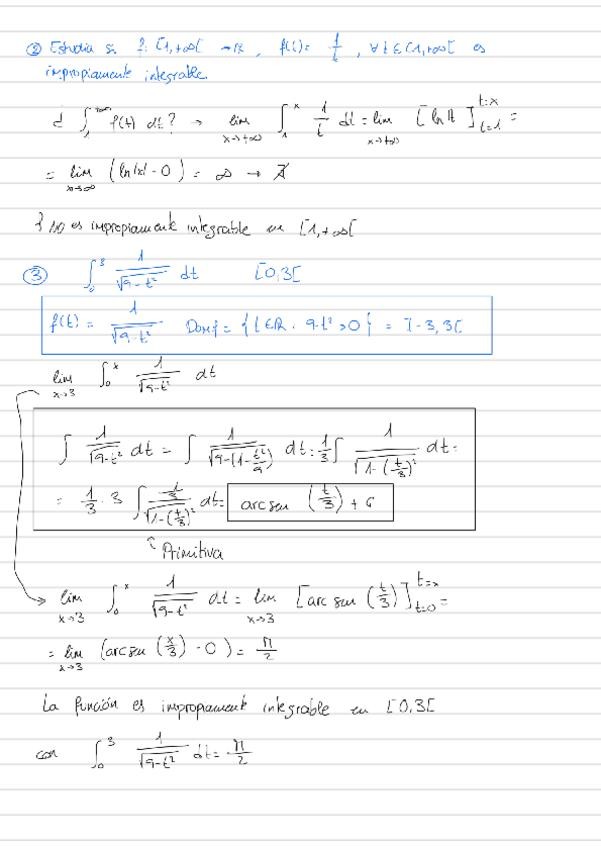 ② Estudia si f: [1,+∞[ → ℝ, f(t) = 1/t, ∀t∈[1,+∞[ es
impropiamente integrable.
¿ ∫₁^{+∞} f(t) dt? → lim_{x→+∞} ∫₁^x 1/t dt = lim_{x→+∞} [ln|t|]_{t=1}^{t=x} =
= lim_{x→∞} (ln|x| - 0) = ∞ → ∄
f no es impropiamente integrable en [1,+∞[
③ ∫₀³ 1/√(9-t²) dt [0,3[
f(t) = 1/√(9-t²) Dom f = {t∈ℝ : 9-t²>0} = ]-3,3[
lim_{x→3} ∫₀^x 1/√(9-t²) dt
∫ 1/√(9-t²) dt = ∫ 1/√(9·(1-t²/9)) dt = 1/3 ∫ 1/√(1-(t/3)²) dt =
= 1/3 · 3 ∫ (1/3)/√(1-(t/3)²) dt = arcsen (t/3) + C
Primitiva
lim_{x→3} ∫₀^x 1/√(9-t²) dt = lim_{x→3} [arcsen (t/3)]_{t=0}^{t=x} =
= lim_{x→3} (arcsen (x/3) - 0) = π/2
La función es impropiamente integrable en [0,3[
con ∫₀³ 1/√(9-t²) dt = π/2